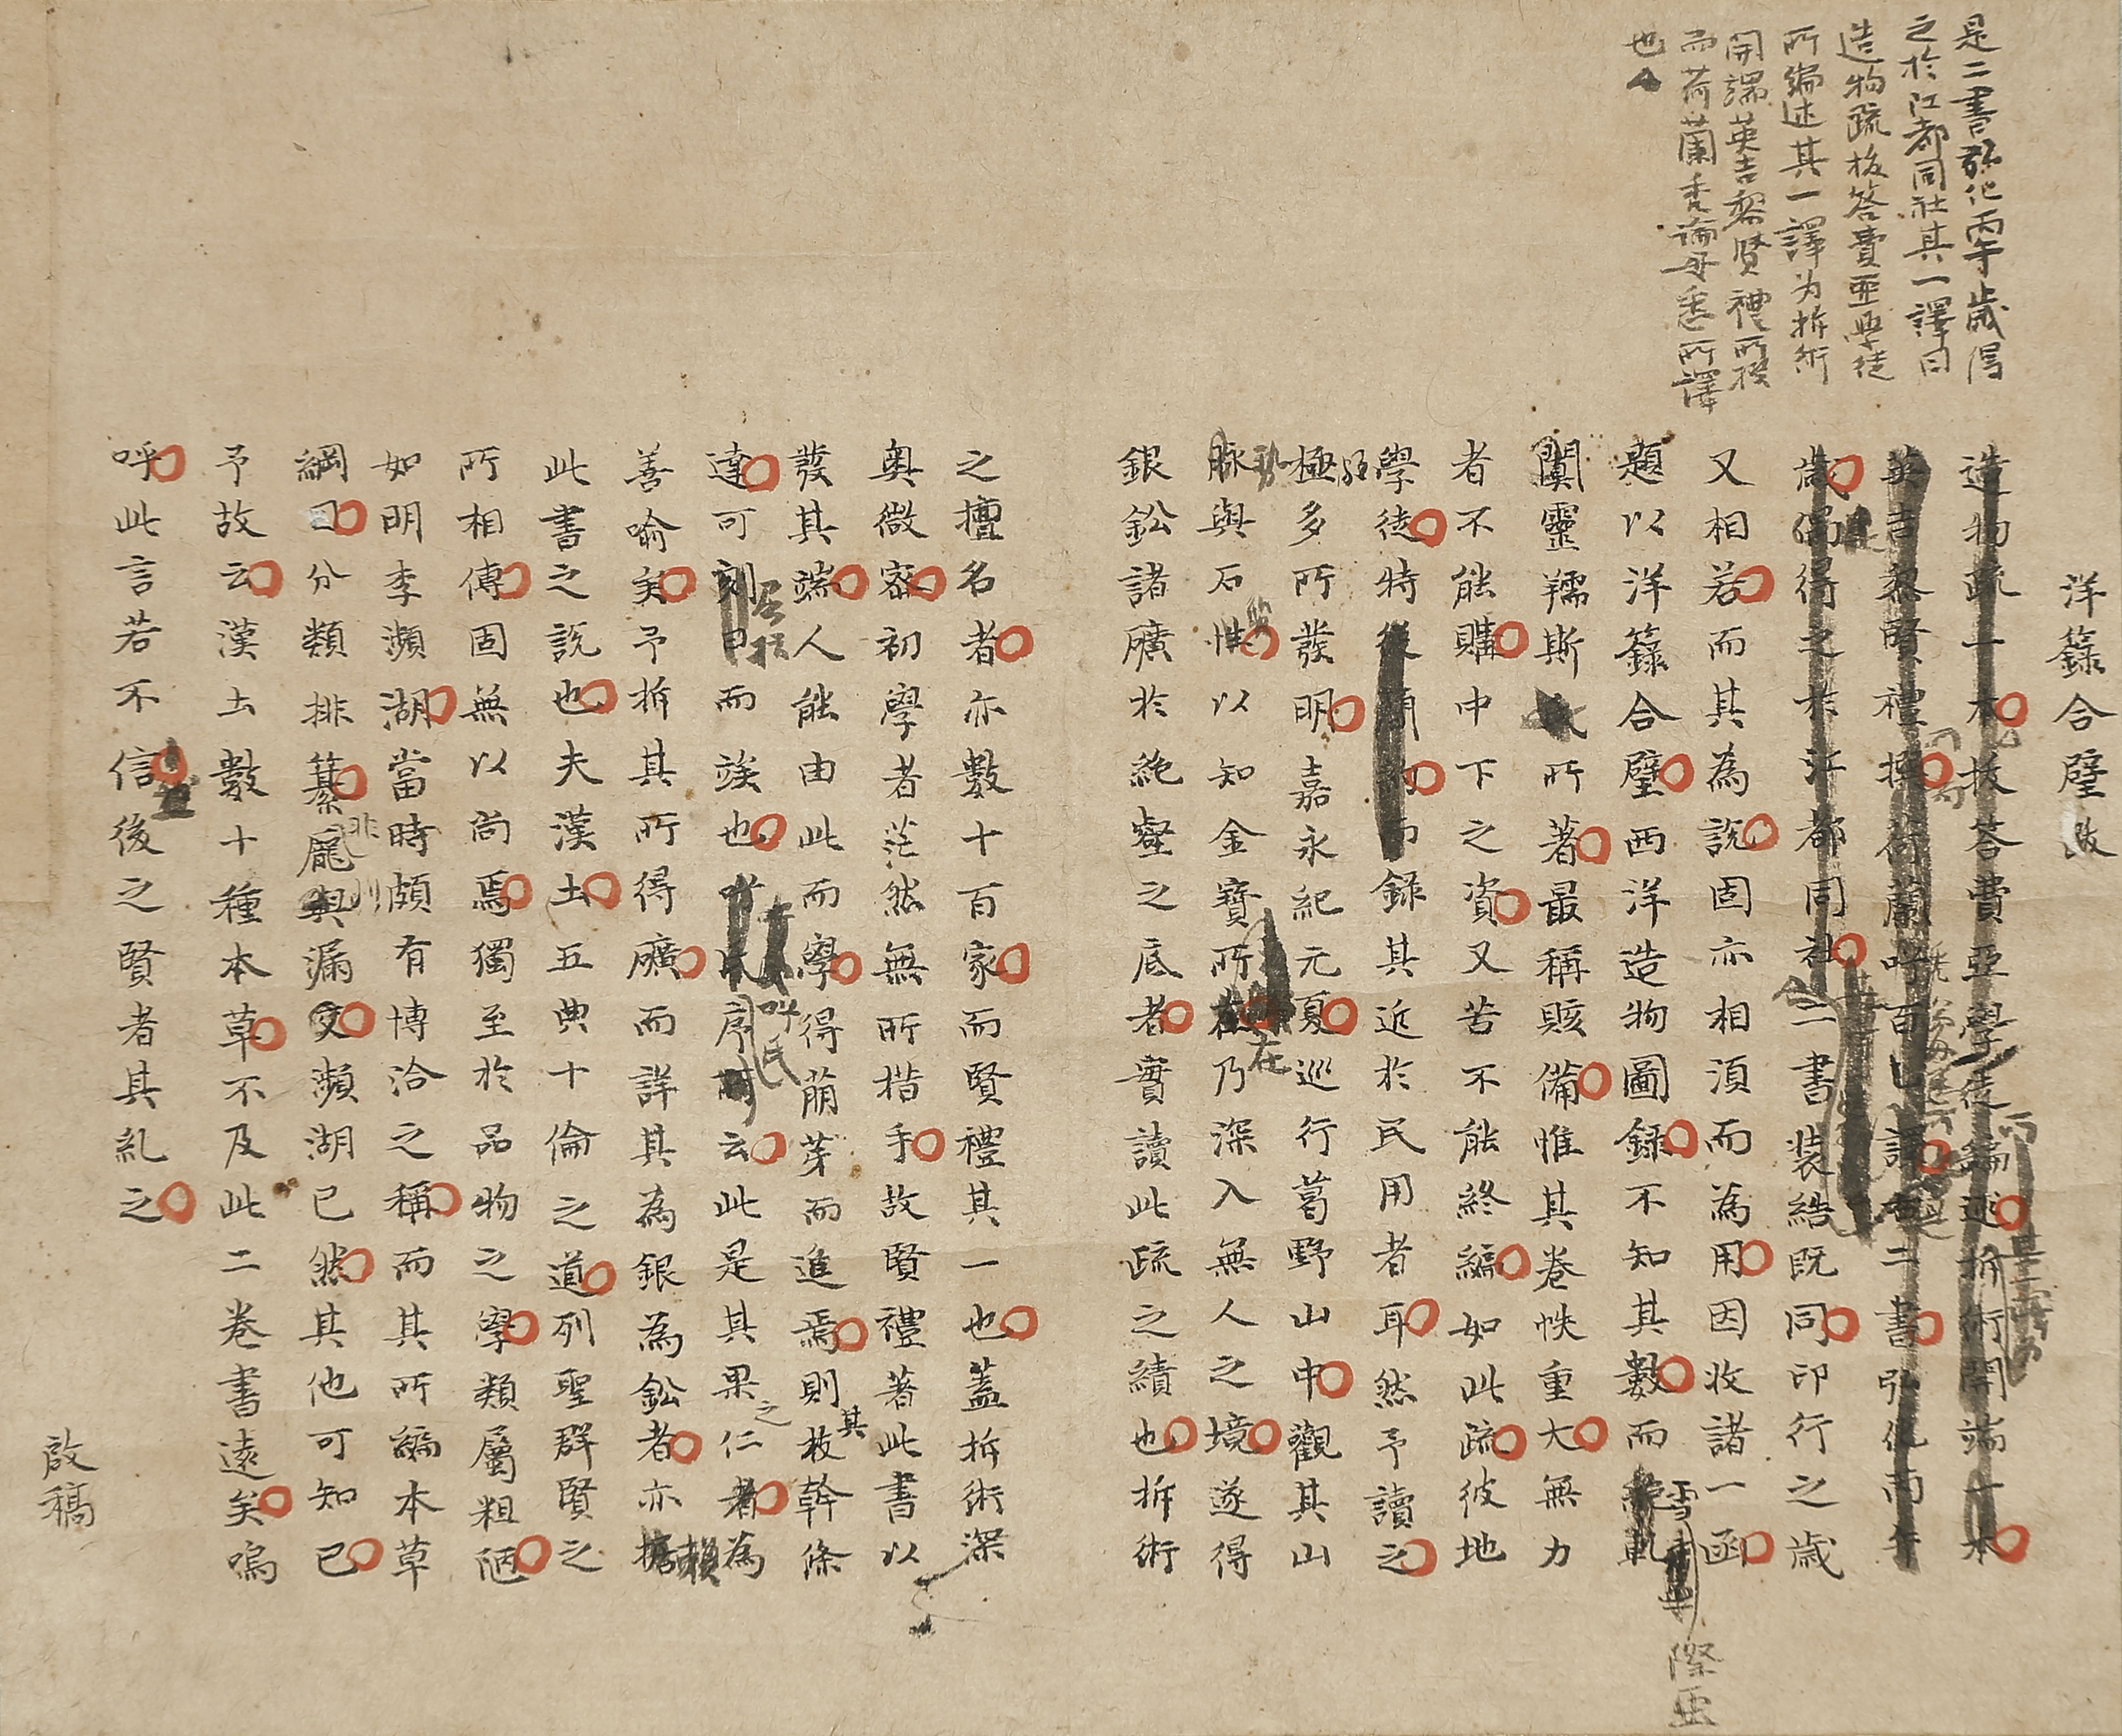 是二書弘化丙午歲得
之於江都同社其一譯曰
造物疏板答費亜學徒
所編述其一譯为拆術
開端英吉黎賢禮所撰
而荷蘭
所譯
也
洋籙合璧
造物疏一本板答費亞學徒編述拆術開端一本
英吉黎賢禮撰荷蘭
二書弘化丙午
歲偶得之於江都同社二書裝緒既同印行之歲
又相若而其為說固亦相須而為用因收諸一函
題以洋籙合璧西洋造物圖錄不知其數而
雪際亜
闐靈孺斯所著最稱賅備惟其卷帙重大無力
者不能購中下之資又苦不能終編如此疏彼地
學徒特
錄其近於民用者耳然予讀之
極多所發明嘉永紀元夏巡行葛野山中觀其山
脉與石性以知金寶所在乃深入無人之境遂得
銀鈆諸礦於絶壑之底者實讀此疏之績也拆術
之擅名者亦數十百家而賢禮其一也蓋拆術深
奥微密初學者茫然無所措手故賢禮著此書以
發其端人能由此而學得萠芽而進焉則其枝幹條
達可
而竢也
呼氏序
云此是其果之仁者為
善喻矣予拆其所得礦而詳其為銀為鈆者亦賴
此書之說也夫漢土五典十倫之道列聖群賢之
所相傳固無以尚焉獨至於品物之學類屬粗陋
如明李瀕湖當時頗有博洽之稱而其所編本草
綱目分類排纂厖
漏
瀕湖已然其他可知已
予故云漢土數十種本草不及此二卷書遠矣嗚
呼此言若不信後之賢者其糺之
啟稿